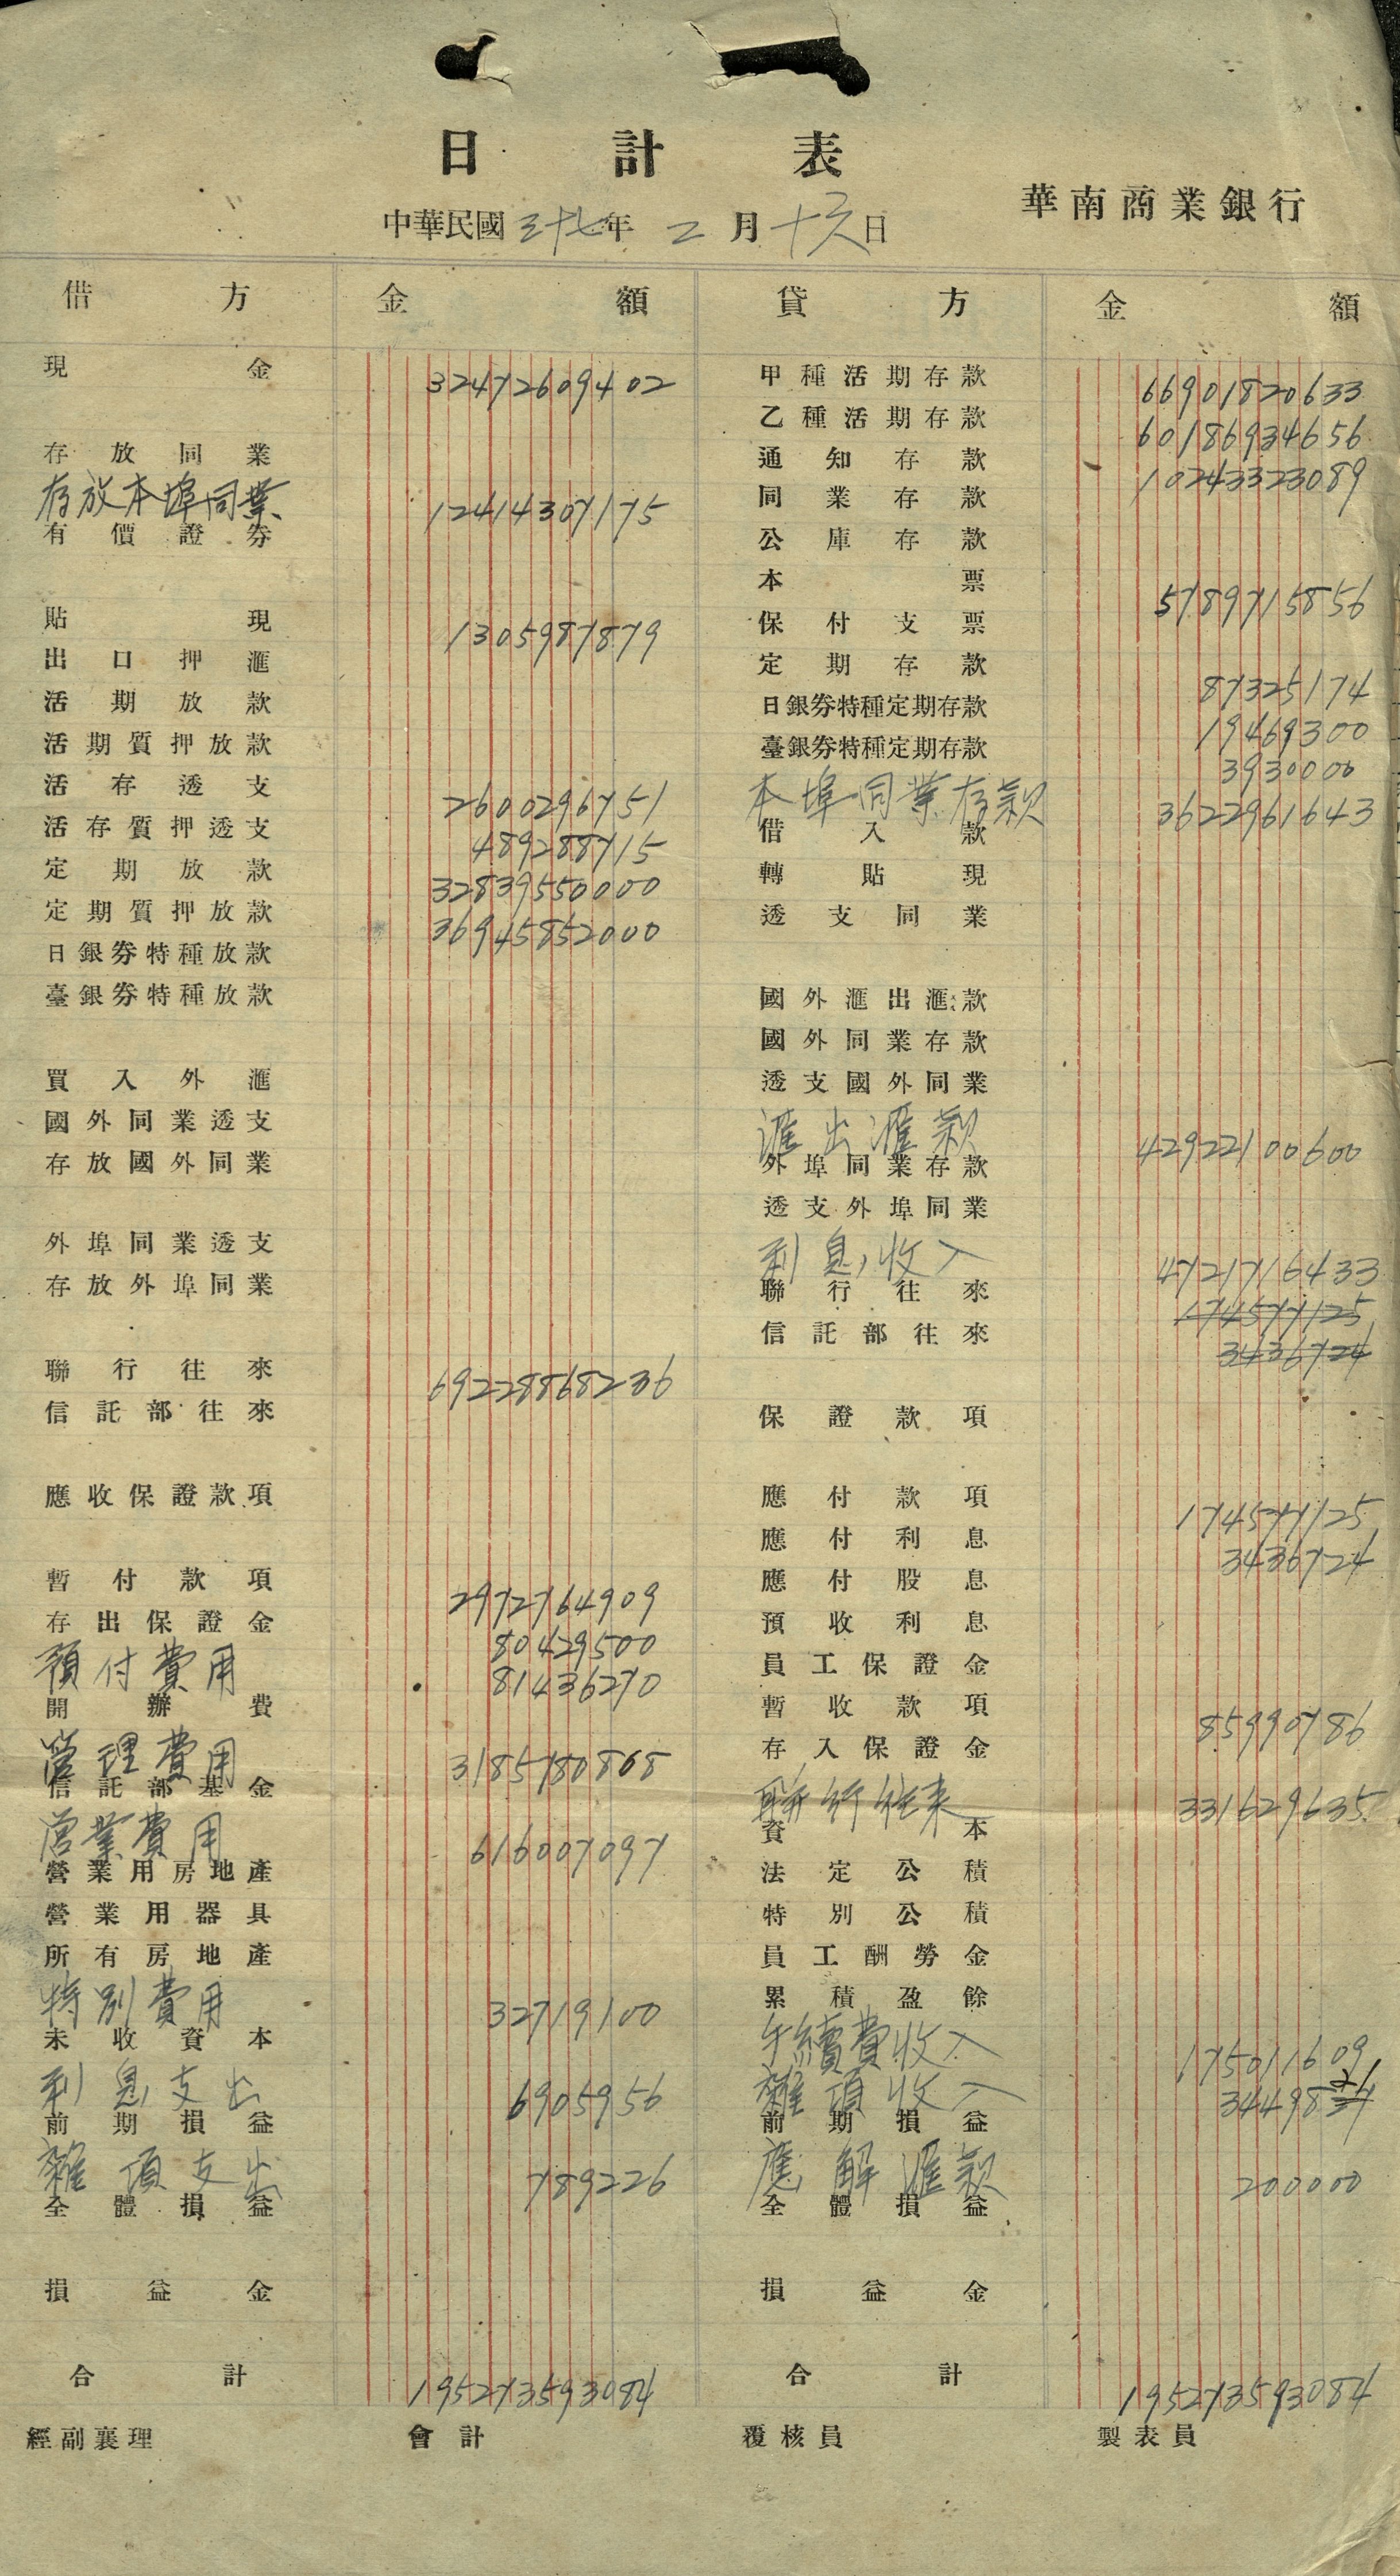 日計表
華南商業銀行
中華民國三十七年二月十六日
借方 金額 貸方 金額
現金 32472609402 甲種活期存款 66901820633
乙種活期存款 60186934656
存放同業 通知存款 10243323089
存放本埠同業 12414307175 同業存款
有價證券 公庫存款
本票 5789715856
貼現 1305987879 保付支票
出口押滙 定期存款 87325174
活期放款 日銀券特種定期存款 19469300
活期質押放款 臺銀券特種定期存款 3930000
活存透支 2600296751 本埠同業存款 3622961643
活存質押透支 489288715 借入款
定期放款 32839550000 轉貼現
定期質押放款 36945852000 透支同業
日銀券特種放款
臺銀券特種放款 國外滙出滙款
國外同業存款
買入外滙 透支國外同業
國外同業透支 滙出滙款 42922100600
存放國外同業 外埠同業存款
透支外埠同業
外埠同業透支 利息收入 4721716433
存放外埠同業 聯行往來 174577125
信託部往來 3436724
聯行往來 69228868236
信託部往來 保證款項
應收保證款項 應付款項 174577125
應付利息 3436724
暫付款項 2972764909 應付股息
存出保證金 80429500 預收利息
預付費用 81436270 員工保證金
開辦費 暫收款項 85990786
管理費用 3185780868 存入保證金
信託部基金 聯行往来 331629635
營業費用 616007097 資本
營業用房地產 法定公積
營業用器具 特別公積
所有房地產 員工酬勞金
特別費用 32719100 累積盈餘
未收資本 手續費收入 175011609
利息支出 6905956 雜項收入 3449821
前期損益 前期損益
雜項支出 789226 應解滙款 200000
全體損益 全體損益
損益金 損益金
合計 195273593084 合計 195273593084
經副襄理 會計 覆核員 製表員